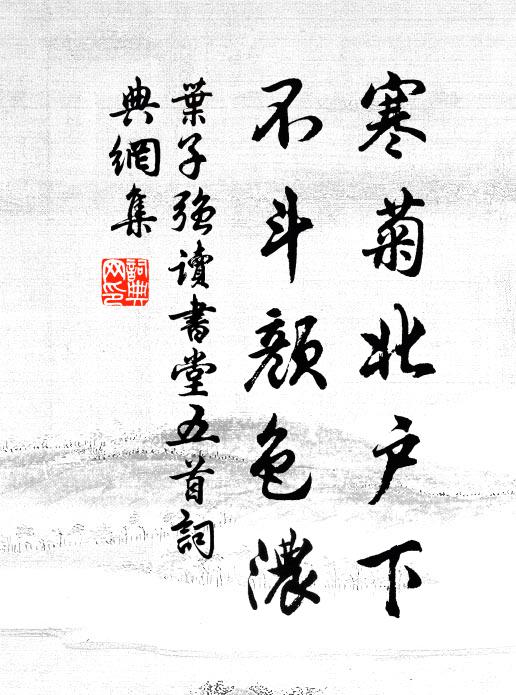 寒菊北户下
不斗颜色濃
葉子强讀書堂五首詞
典網集
詞典
网印